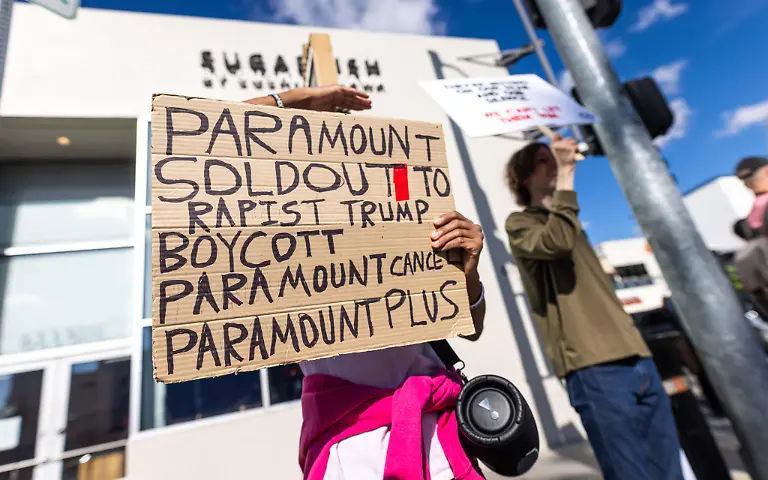 SUGARFISH
PARAMOUNT
SOLDOUT TO
RAPIST TRUMP
BOYCOTT
PARAMOUNT CANCEL
PARAMOUNT PLUS